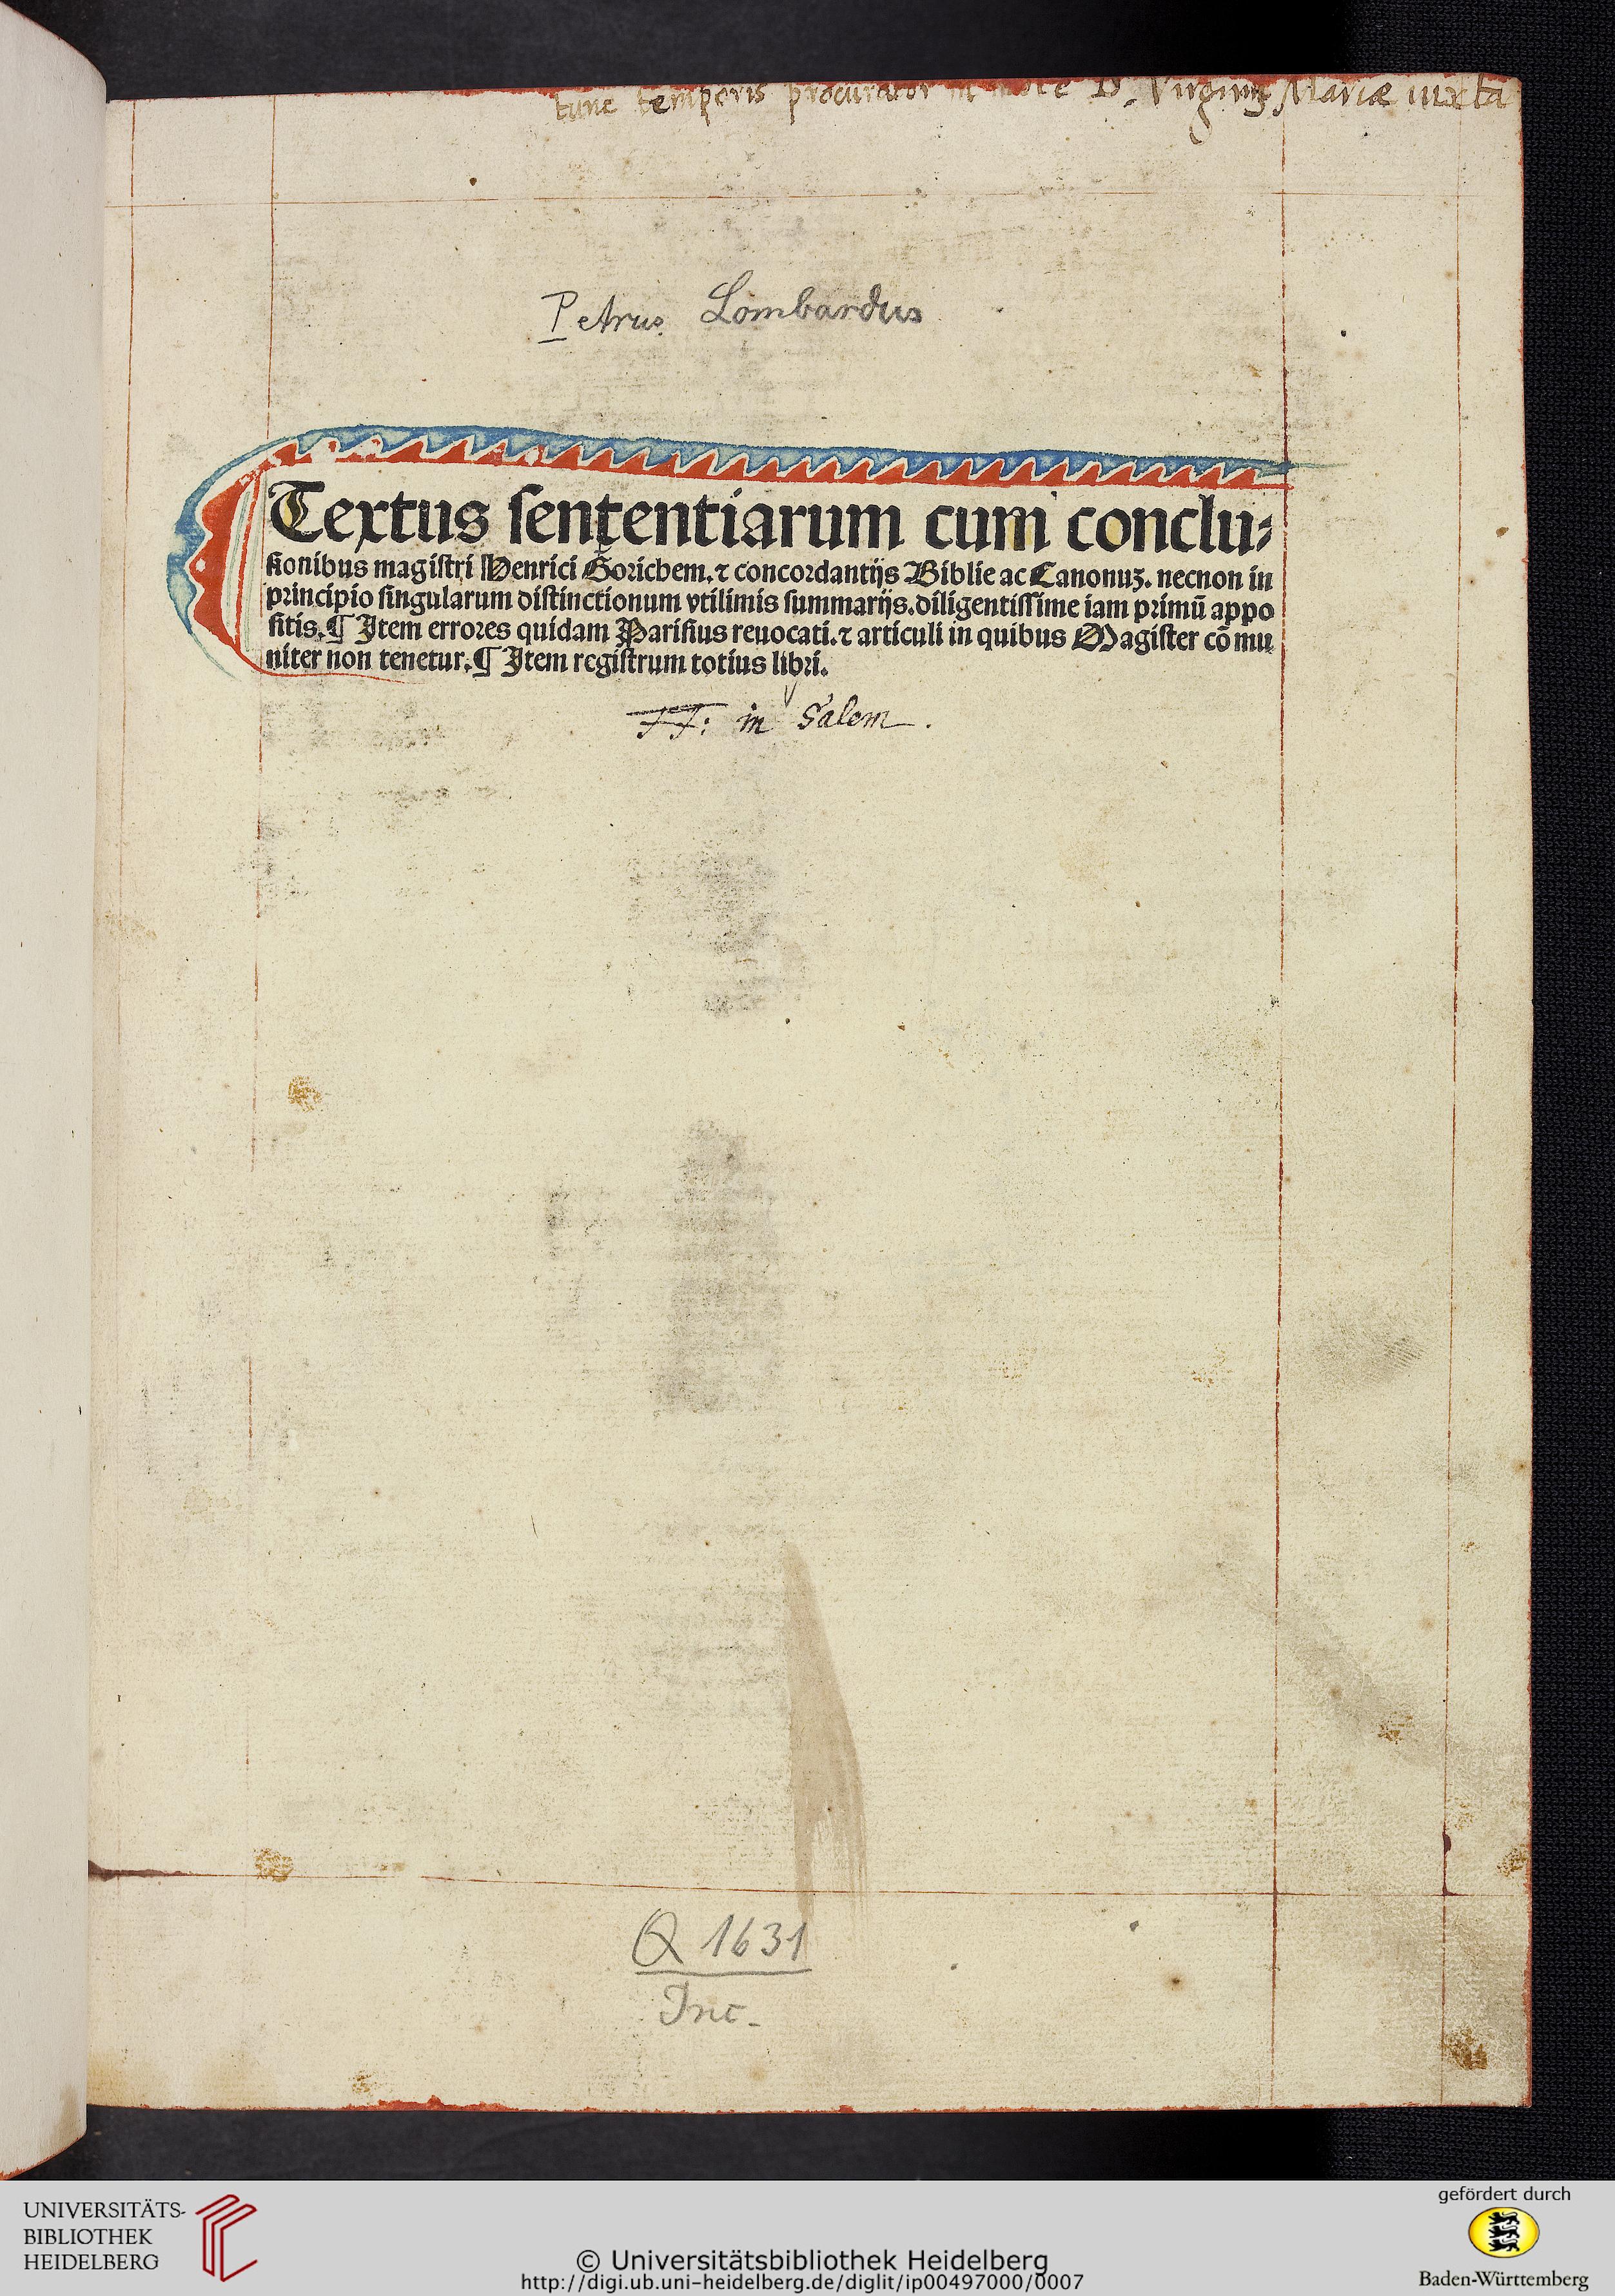 tunc temporis procurator in monte B. Virginis Mariæ iuxta
Petrus Lombardus
Textus ſententiarum cum conclu⸗
ſionibus magiſtri Henrici Gorichem. ⁊ concordantijs Biblie ac Canonuꝫ. necnon in
principio ſingularum diſtinctionum vtilimis ſummarijs. diligentiſſime iam primū appo
ſitis. ¶ Item errores quidam Pariſius reuocati. ⁊ articuli in quibus Magiſter cōmu
niter non tenetur. ¶ Item regiſtrum totius libri.
FF: in Salem.
Q 1631
Inc.
UNIVERSITÄTS-
BIBLIOTHEK
HEIDELBERG
© Universitätsbibliothek Heidelberg
http://digi.ub.uni-heidelberg.de/diglit/ip00497000/0007
gefördert durch
Baden-Württemberg